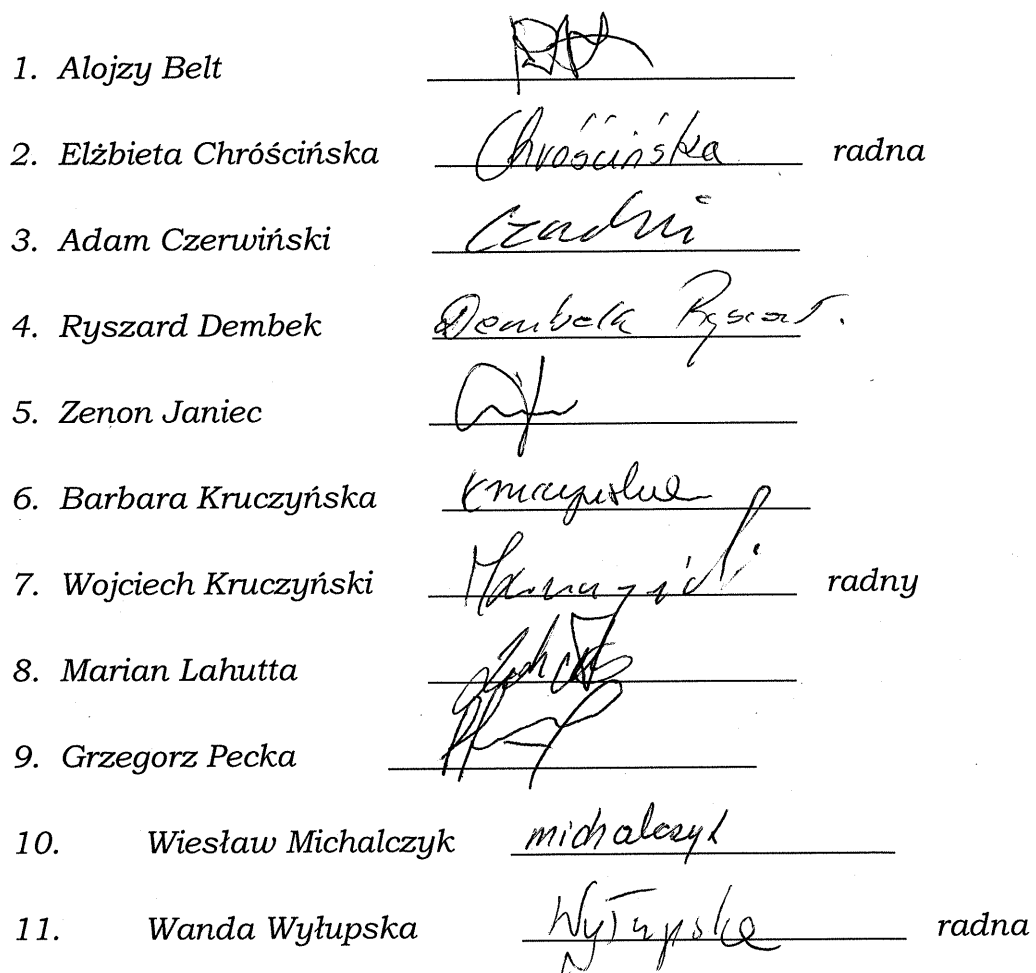 1. Alojzy Belt
2. Elżbieta Chróścińska Chróścińska radna
3. Adam Czerwiński
4. Ryszard Dembek Dembek Ryszard.
5. Zenon Janiec
6. Barbara Kruczyńska
7. Wojciech Kruczyński radny
8. Marian Lahutta
9. Grzegorz Pecka
10. Wiesław Michalczyk michalczyk
11. Wanda Wyłupska Wyłupska radna